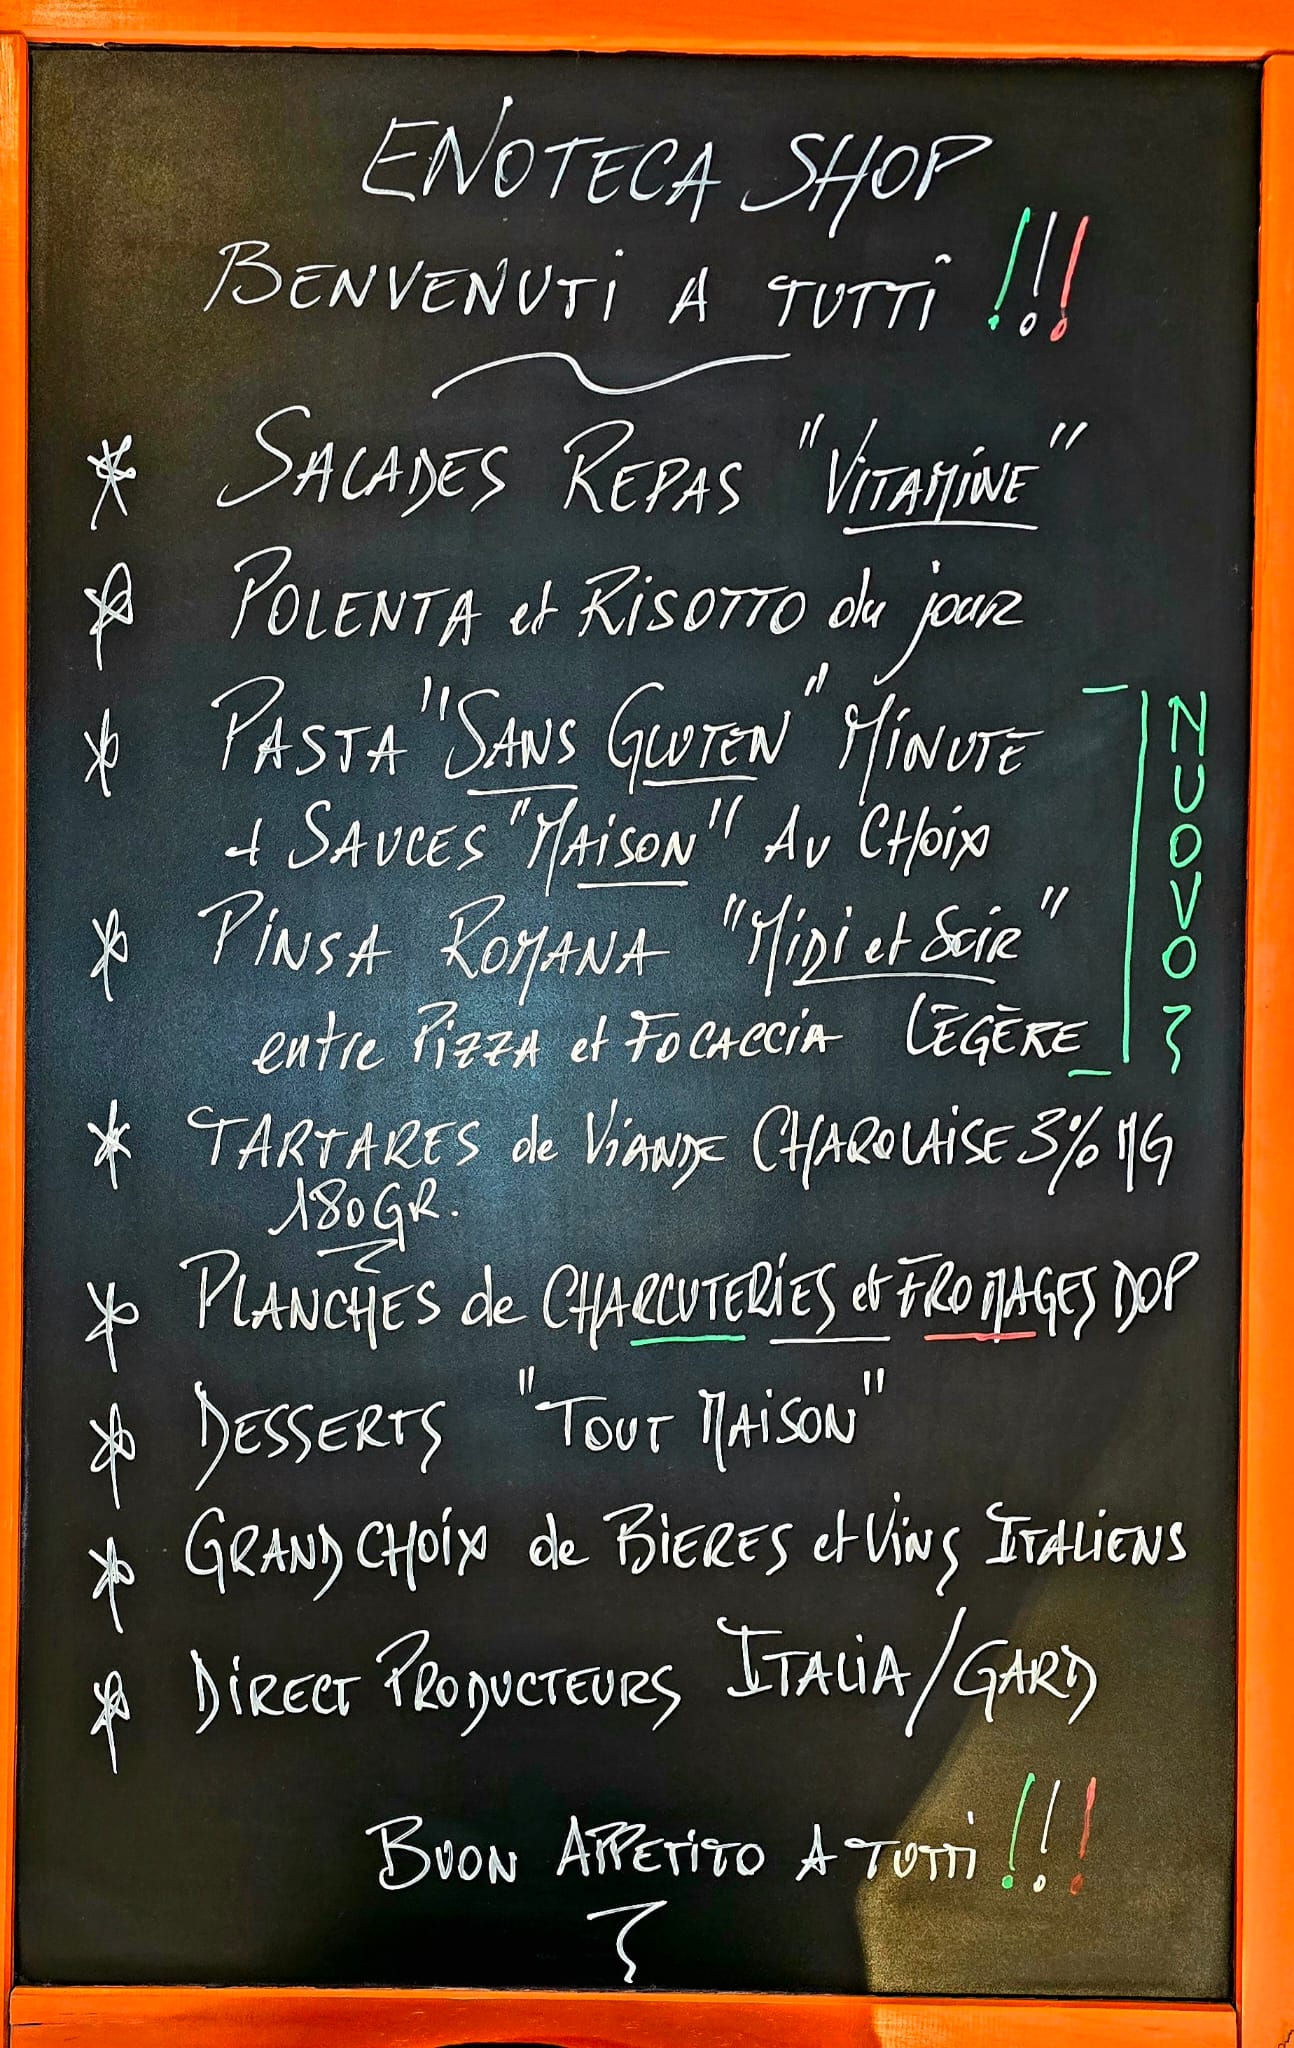 ENOTECA SHOP
BENVENUTI A TUTTI !!!
* SALADES REPAS "VITAMINE"
* POLENTA et RISOTTO du jour
* PASTA "SANS GLUTEN" MINUTE
+ SAUCES "MAISON" AU CHOIX
* PINSA ROMANA "MIDI et SOIR"
entre PIZZA et FOCACCIA LÉGÈRE
NUOVO
* TARTARES de VIANDE CHAROLAISE 3% MG
180GR.
* PLANCHES de CHARCUTERIES et FROMAGES DOP
* DESSERTS "TOUT MAISON"
* GRAND CHOIX de BIERES et VINS ITALIENS
* DIRECT PRODUCTEURS ITALIA/GARD
BUON APPETITO A TUTTI !!!